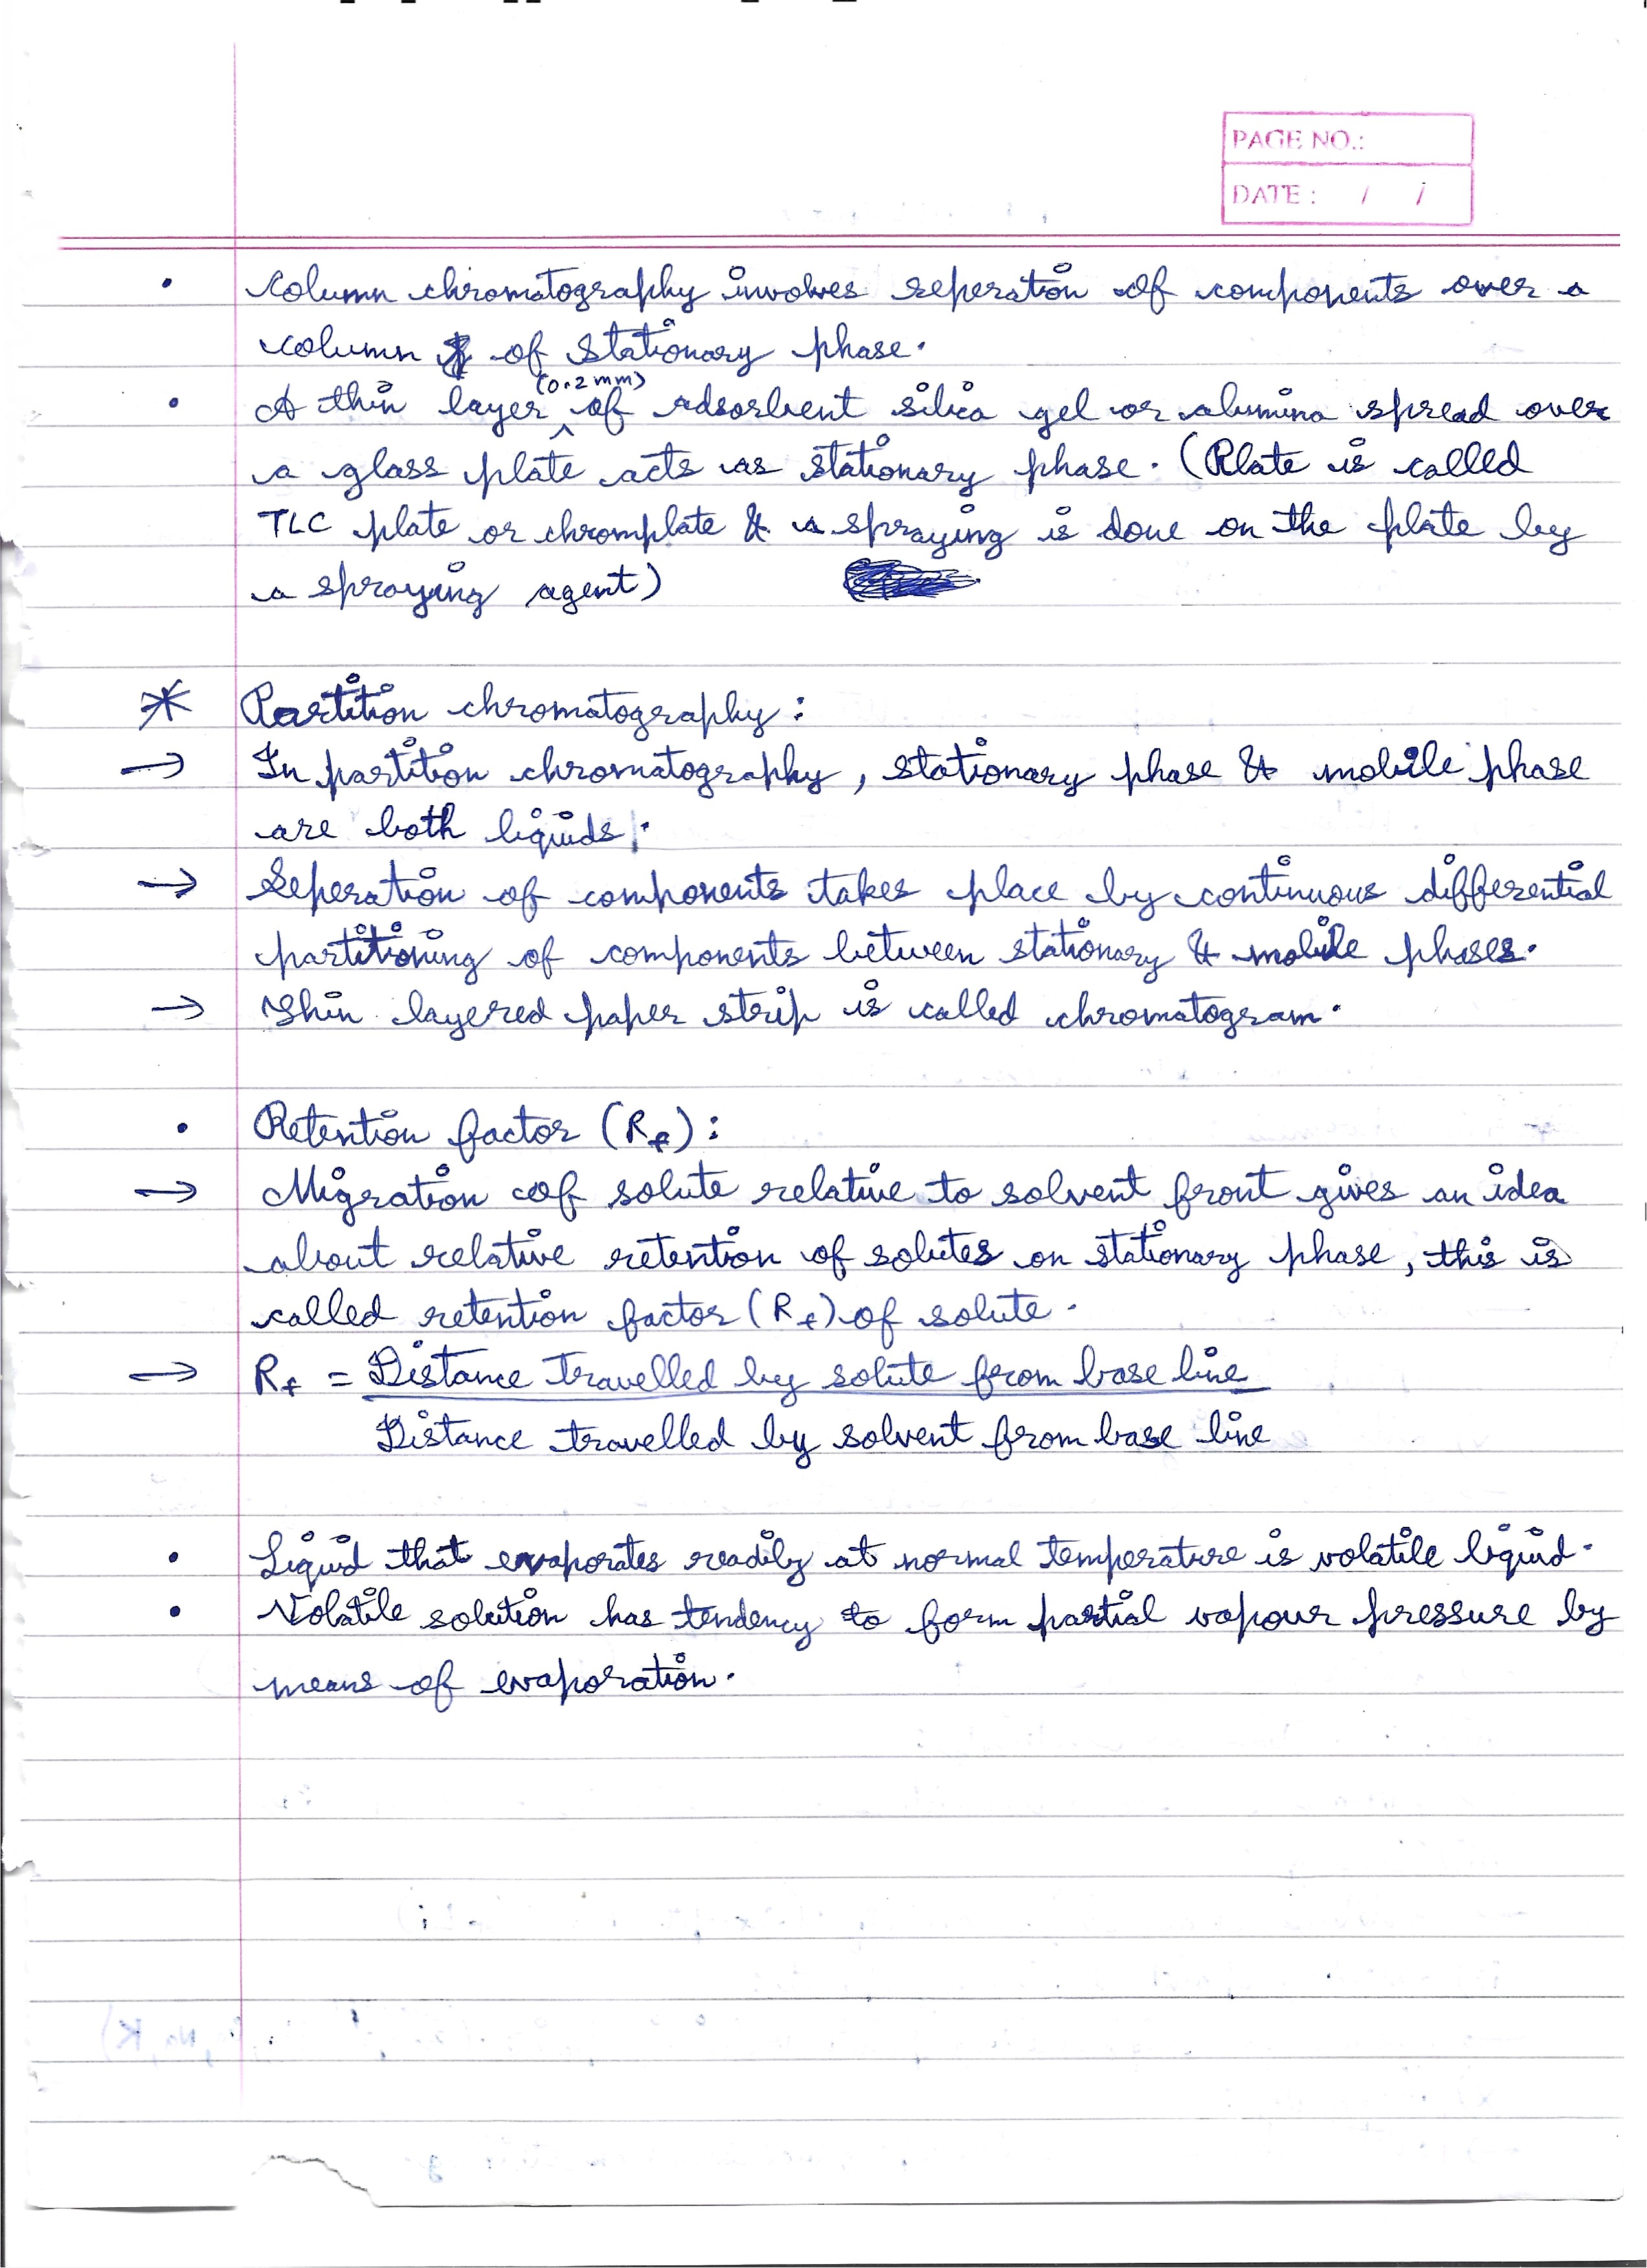 PAGE NO.:
DATE : / /
• Column chromatography involves seperation of components over a
column of stationary phase.
(0.2 mm)
• A thin layer ^ of adsorbent silica gel or alumina spread over
a glass plate acts as stationary phase. (Plate is called
TLC plate or chromplate & a spraying is done on the plate by
a spraying agent)
* Partition chromatography :
→ In partition chromatography, stationary phase & mobile phase
are both liquids.
→ Seperation of components takes place by continuous differential
partitioning of components between stationary & mobile phases.
→ Thin layered paper strip is called chromatogram.
• Retention factor (Rf) :
→ Migration of solute relative to solvent front gives an idea
about relative retention of solutes on stationary phase, this is
called retention factor (Rf) of solute.
→ Rf = Distance travelled by solute from base line
Distance travelled by solvent from base line
• Liquid that evaporates readily at normal temperature is volatile liquid.
• Volatile solution has tendency to form partial vapour pressure by
means of evaporation.